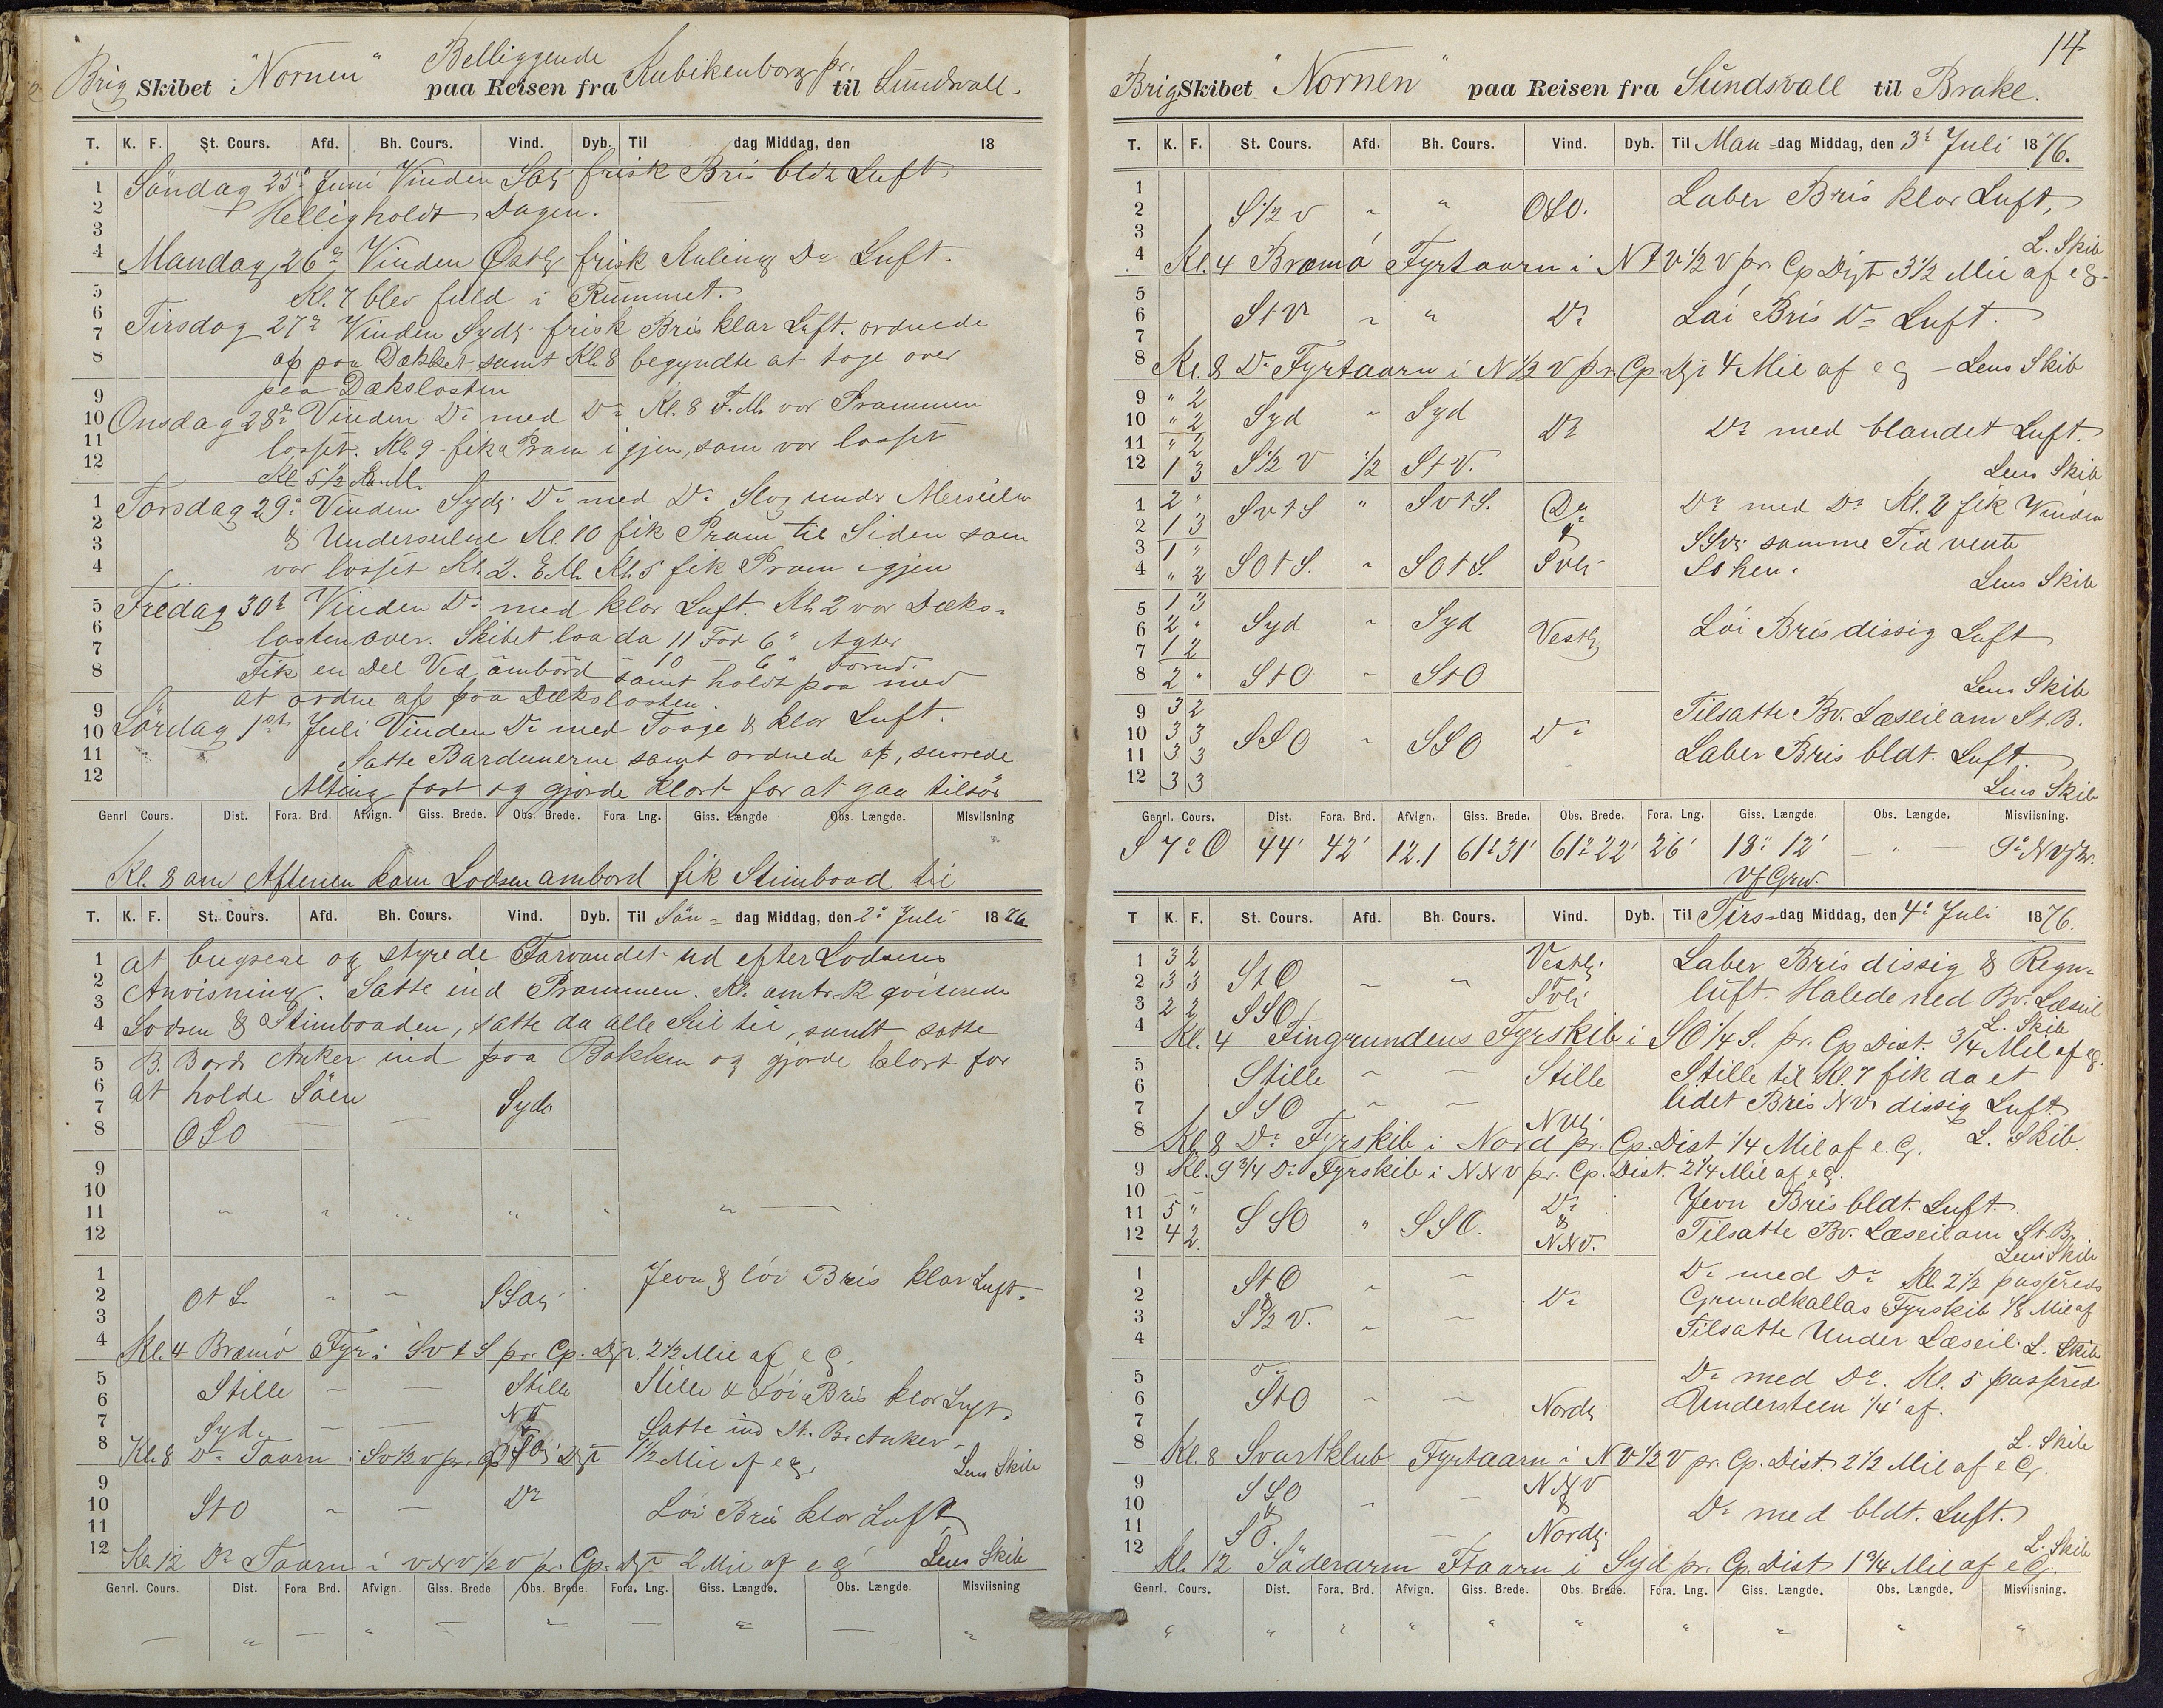 Brig Skibet "Nornen" Belliggende paa Reisen fra Kubikenborg pr. til Sundsvall.
T. K. F. St. Cours. Afd. Bh. Cours. Vind. Dyb. Til dag Middag, den 18
Söndag 25de Juni Vinden frisk Bris bldt Luft
Helligholdt Dagen.
Mandag 26de Vinden Østlg frisk Kuling Do Luft.
Kl. 7 blev fuld i Rummet.
Tirsdag 27de Vinden Sydlg frisk Bris klar Luft. ordnede
af paa Dækket samt Kl. 8 begyndte at tage over
paa Dækslasten
Onsdag 28de Vinden Do med Do Kl. 8 F.M. var Prammen
losset. Kl. 9 fik a Pram igjen, som var losset
Kl 5 1/2 E.M.
Torsdag 29de Vinden Sydlg Do med Do Slog under Merseilen
& Underseilene Kl. 10 fik Pram til Siden som
var losset Kl. 2. E.M. Kl. 5 fik Pram igjen
Fredag 30te Vinden Do med klar Luft. Kl. 2 var Dæks-
lasten over. Skibet laa da 11 Fod 6" Agter
10 - 6" Forud.
Fik en Del Ved ombord samt holdt paa med
at ordne af paa Dækslasten.
Lördag 1ste Juli Vinden Do med Taage & klar Luft.
Satte Bardunerne samt ordnede af, surrede
Alting fast og gjorde klart for at gaa tilsös
Genrl Cours. Dist. Fora. Brd. Afvign. Giss. Brede. Obs. Brede. Fora. Lng. Giss. Længde Obs. Længde. Misviisning
Kl. 8 om Aftenen kom Lodsen ombord fik Stimbaad til
T. K. F. St. Cours. Afd. Bh. Cours. Vind. Dyb. Til Sön- dag Middag, den 2de Juli 1876
at bugsere og styrede Farvandet ud efter Lodsens
Anvisning. Satte ind Prammen. Kl. omtr. 12 qviterede
Lodsen & Stimbaaden, satte da alle Seil til, samt satte
B. Bords Anker ind paa Bakken og gjorde klart for
at holde Söen
Syd
OSO
Jevn & löi Bris klar Luft.
OtS
Kl. 4 Bræmö Fyr i SvtS pr. Cp. Dist. 2 1/2 Mil af e G.
Stille Stille Stille & Löi Bris klar Luft.
Syd Satte ind St. B. Anker.
Kl. 8 Do Taarn i Sv 1/2 v pr. Cp Dist 1 1/2 Mil af e G. Lens Skib
StO Do Löi Bris klar Luft
Kl. 12 Do Taarn i vNv 1/2 v pr. Cp. Dist 2 Mil af e G Lens Skib
Genrl. Cours. Dist. Fora Brd. Afvign. Giss. Brede Obs. Brede. Fora. Lng. Giss. Længde. Obs. Længde. Misviisning
14
Brig Skibet "Nornen" paa Reisen fra Sundsvall til Brake.
T. K. F. St. Cours. Afd. Bh. Cours. Vind. Dyb. Til Man-dag Middag, den 3de Juli 1876.
S 1/2 v " " OSO. Laber Bris klar Luft,
L. Skib
Kl. 4 Bræmö Fyrtaarn i NtV 1/2 V pr. Cp Dist 3 1/2 Mil af e G
StV " " Do Löi Bris Do Luft.
Kl. 8 Do Fyrtaarn i N 1/2 V pr. Cp Dist 4 Mil af e G - Lens Skib
" 2
" 2 Syd " Syd Do Do med blandet Luft.
" 2
1 3 S 1/2 V 1/2 StV. Lens Skib
2 " SvtS " SvtS. Do Do med Do Kl. 2 fik Vinden
1 3 & SSv. samme Tid vendte
1 " SOtS. " SOtS. Svlg SO hen.
" 2 Lens Skib
1 3
2 " Syd " Syd Vestlg Löi Bris dissig Luft
1 2
2 " StO " StO Lens Skib
3 2 Tilsatte Bv. Læseil om St. B.
3 3 SSO " SSO Do Laber Bris bldt. Luft.
3 3
3 3 Lens Skib
Genrl. Cours. Dist. Fora. Brd. Afvign. Giss. Brede. Obs. Brede. Fora. Lng. Giss. Længde. Obs. Længde. Misviisning.
S 7° O 44' 42' 12.1 61° 31' 61° 22' 26' 18° 12' 9° NVV.
Vf Grw.
T K. F. St. Cours. Afd. Bh. Cours. Vind. Dyb. Til Tirs-dag Middag, den 4de Juli 1876.
3 2 Vestlg Laber Bris dissig & Regn-
3 3 StO luft. Halede ned Bv. Læseil
2 2 SSO Svlg L. Skib
Kl. 4 Fingrundens Fyrskib i SO 1/4 S. pr. Cp Dist. 3/4 Mil af e G.
Stille Stille Stille til Kl. 7 fik da et
SSO NVlg lidet Bris NV dissig Luft
Kl. 8 Do Fyrskib i Nord pr. Cp. Dist 1/4 Mil af e. G. L. Skib.
Kl. 9 3/4 Do Fyrskib i NNV pr. Cp. Dist. 2 1/4 Mil af e G.
5 " SSO " SSO. Do Jevn Bris bldt. Luft.
4 2 & NNV. Tilsatte Bv. Læseil om St. B.
Lens Skib
StO Do med Do Kl. 2 1/2 passerede
& Do Grundkallas Fyrskib 1/8 Mil af
S 1/2 V. Tilsatte Under Læseil. L. Skib
Do med Do. Kl. 5 passered
StO Nordlg Understeen 1/4' af.
L. Skib
Kl. 8 Svartklub Fyrtaarn i NV 1/2 V pr. Cp. Dist. 2 1/2 Mil af e G.
SSO NNV
& & Do med bldt. Luft.
SO. Nordlg. L. Skib
Kl. 12 Söderarm Ftaarn i Syd pr. Cp. Dist 1 3/4 Mil af e G.
Genrl. Cours. Dist. Fora. Brd. Afvign. Giss. Brede. Obs. Brede. Fora. Lng. Giss. Længde. Obs. Længde. Misviisning.